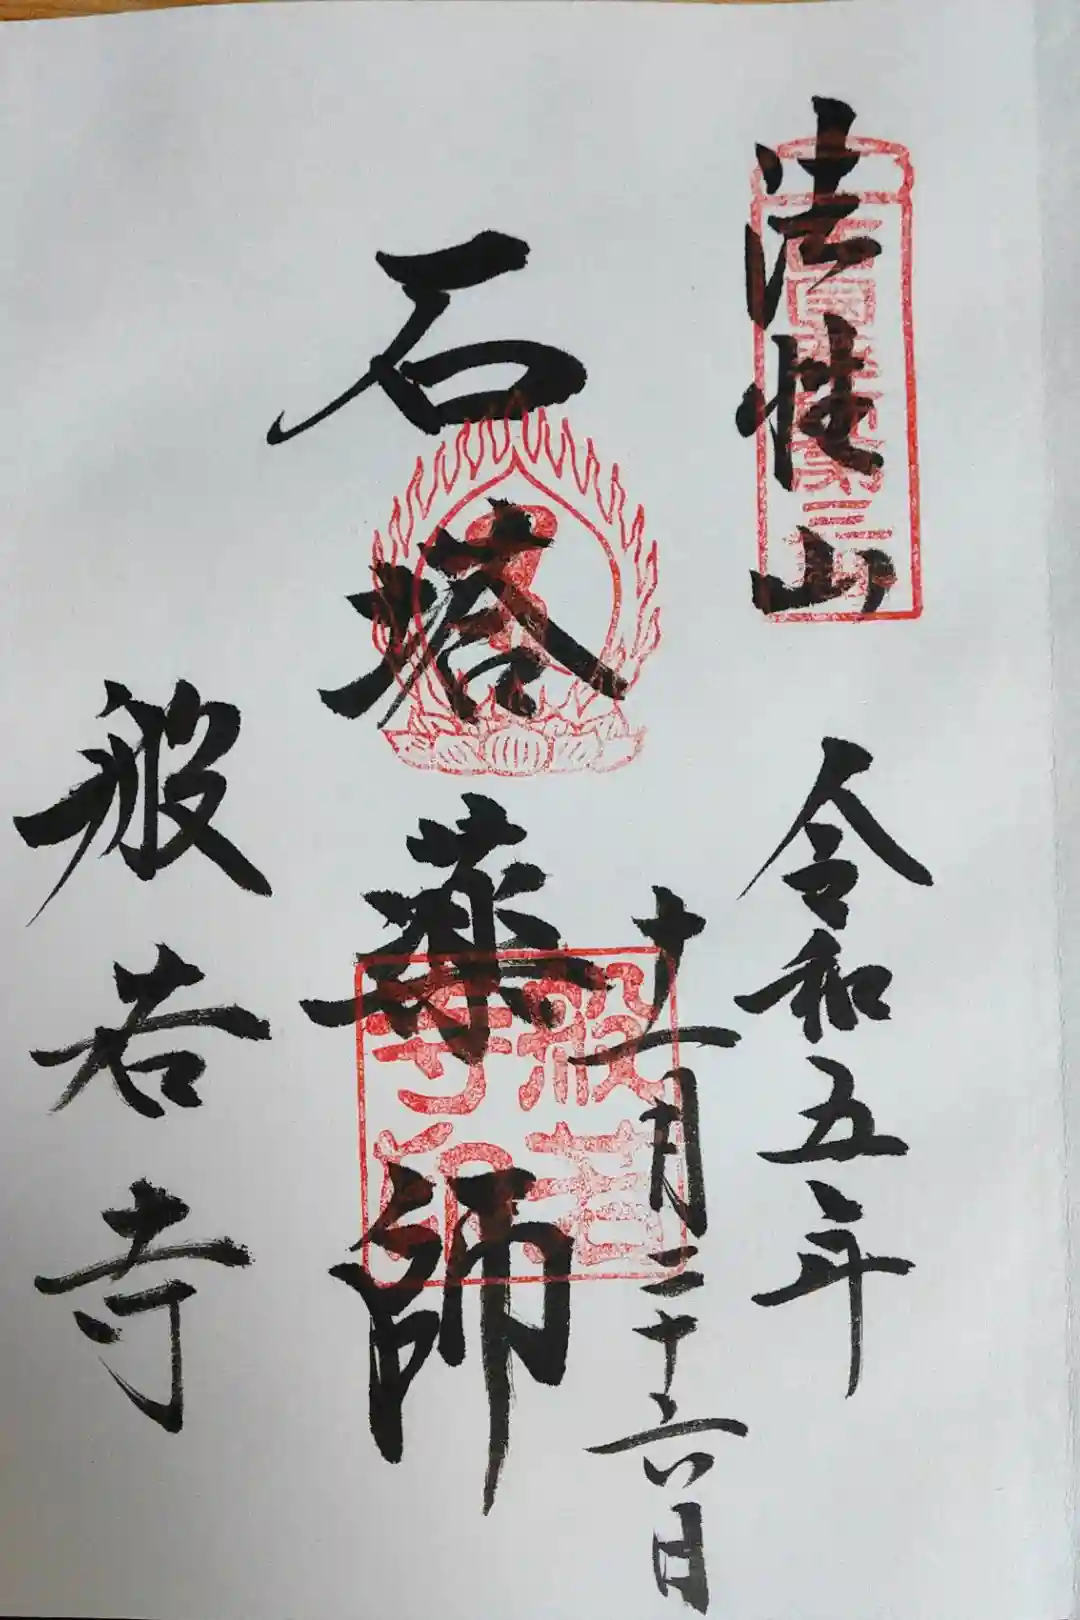 法性山
令和五年
十二月二十六日
石塔薬師
般若寺
般若寺印